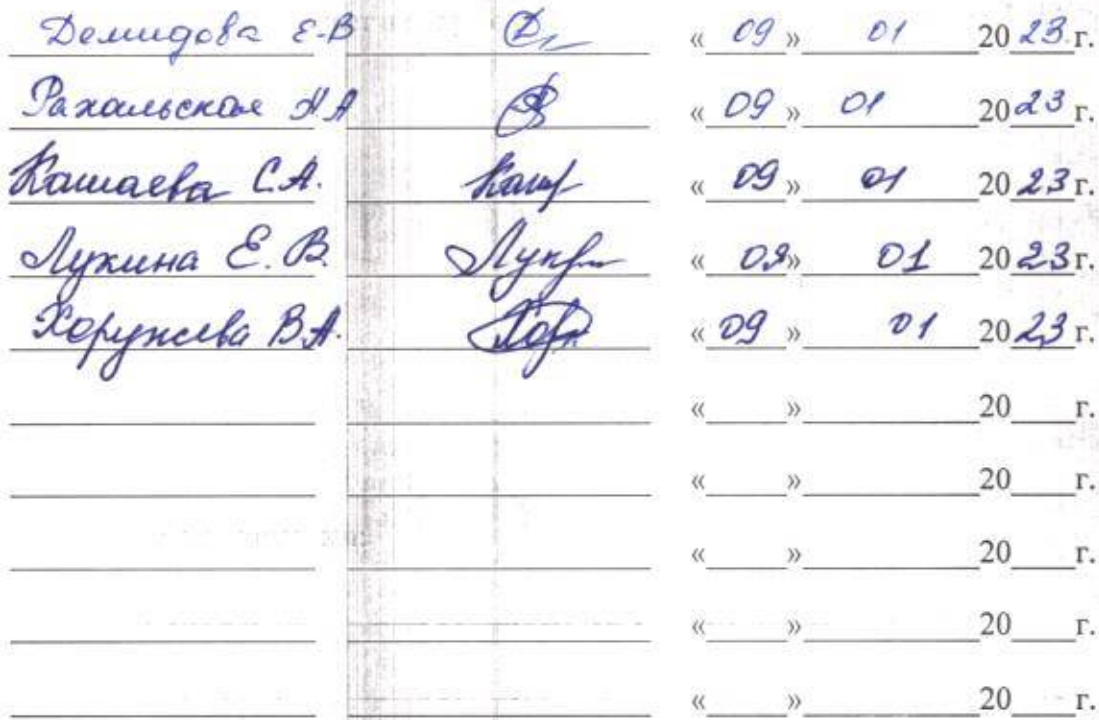 Демидова Е.В « 09 » 01 2023.г.
Рахальская Н А « 09 » 01 2023 г.
Кашаева С.А. Каш « 09 » 01 2023 г.
Лукина Е.В. « 09 » 01 2023г.
Хоружева В.А. Хор « 09 » 01 2023 г.
« » 20 г.
« » 20 г.
« » 20 г.
« » 20 г.
« » 20 г.